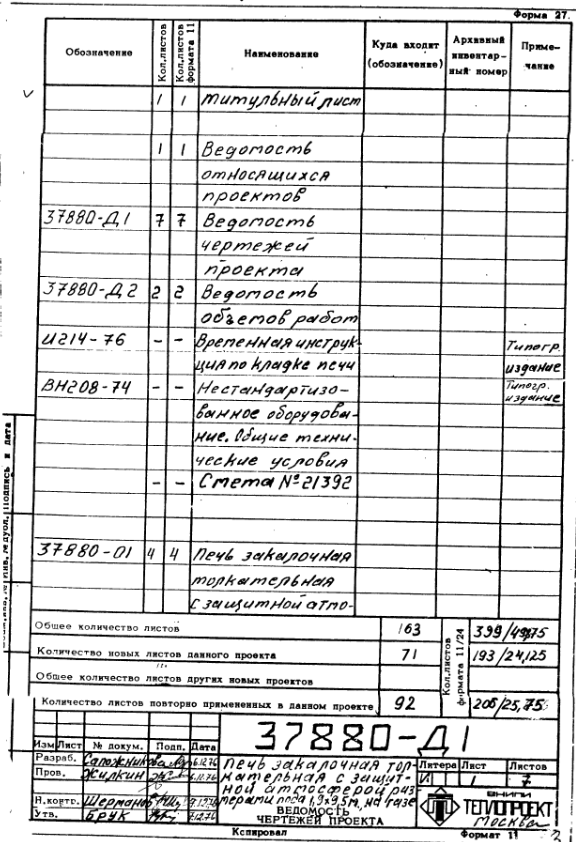 Форма 27.
Обозначение Кол.листов Кол.листов формата 11 Наименование Куда входит (обозначение) Архивный инвентар-ный номер Приме-чание
1 1 Титульный лист
1 1 Ведомость
относящихся
проектов
37880-Д1 7 7 Ведомость
чертежей
проекта
37880-Д2 2 2 Ведомость
объемов работ
И214-76 - - Временная инструк- Типогр.
ция по кладке печи издание
ВН208-74 - - Нестандартизо- Типогр. издание
ванное оборудова-
ние. Общие техни-
ческие условия
- - Смета №21392
37880-01 4 4 Печь закалочная
толкательная
с защитной атмо-
Подпись и дата
Общее количество листов 163 Кол.листов формата 11/24
Количество новых листов данного проекта 71 193/24,125
Общее количество листов других новых проектов
Количество листов повторно примененных в данном проекте 92 206/25,75
37880-Д1
Изм Лист № докум. Подп. Дата
Разраб. Сапожникова Печь закалочная тол- Литера Лист Листов
Пров. Жилкин кательная с защит- И 1 7
ной атмосферой раз-
Н.контр. Шерманов мерами пода 1,9х9,5м, на газе ВНИПИ
Утв. Брук ВЕДОМОСТЬ ТЕПЛОПРОЕКТ
ЧЕРТЕЖЕЙ ПРОЕКТА Москва
Копировал Формат 11